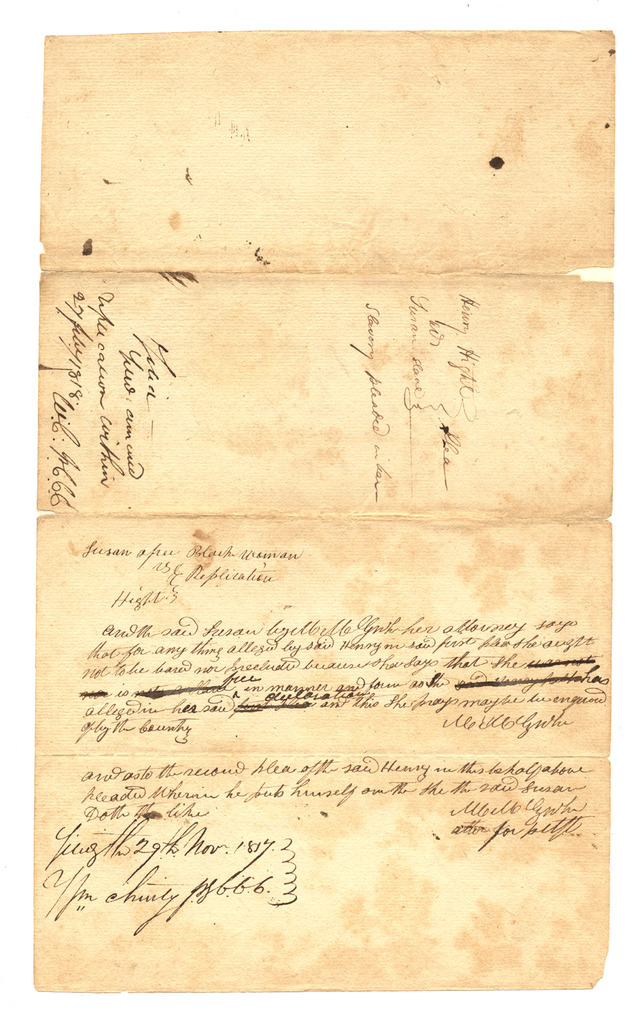 Henry Hight
vs
Susan slave
Plea
Slavery pleaded in bar
Filed
and amend
replication within
27 July 1818.
Susan a free Black woman
vs Replication
Hight
and the said Susan by her attorney says
that for any thing alleged by said Henry in said first plea she ought
not to be bared nor precluded because she says that she was not
is free in manner and form as she has
alleged in her said declaration and this she prays may be inquired
of by the Country
and as to the second plea of the said Henry in this behalf above
pleaded Wherein he puts himself on the the said Susan
Doth the like
atto for pltff
Filed the 29th Nov. 1817.
Wm Christy